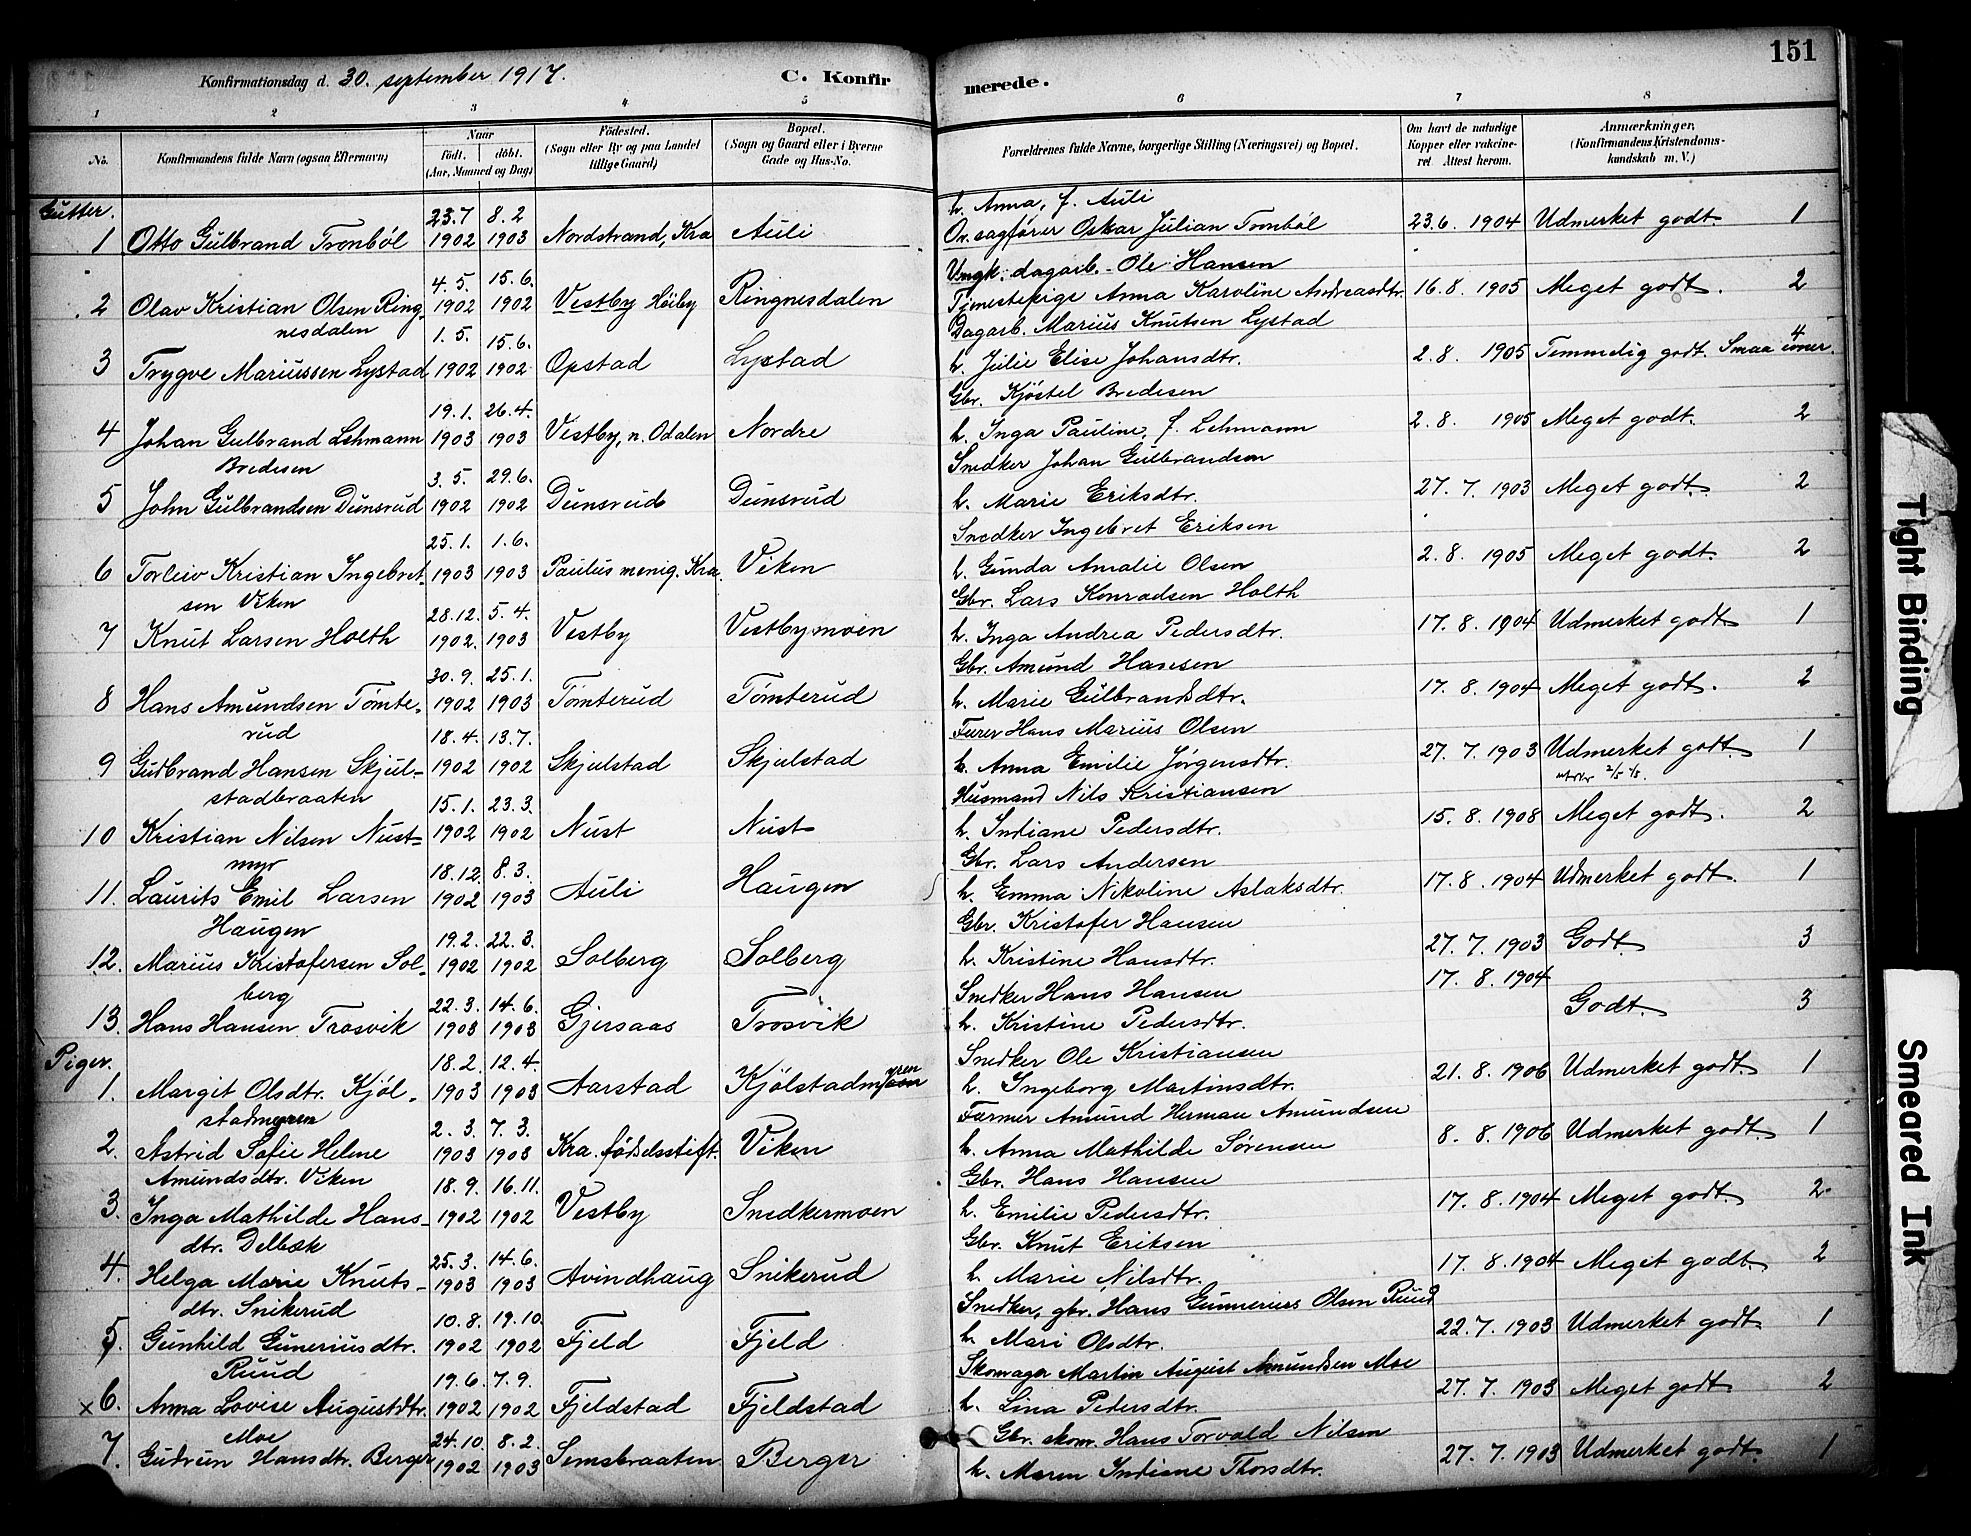 151
Konfirmationsdag d. 30. september 1917. C. Konfirmerede.
1 2 3 4 5 6 7 8
No. Konfirmandens fulde Navn (ogsaa Efternavn) Naar födt. döbt. (Aar, Maaned og Dag) Födested. (Sogn eller By og paa Landet tillige Gaard) Bopæl. (Sogn og Gaard eller i Byerne Gade og Hus-No. Forældrenes fulde Navne, borgerlige Stilling (Næringsvei) og Bopæl. Om havt de naturlige Kopper eller vakcineret Attest herom. Anmærkninger, (Konfirmandens Kristendomskundskab m. V.)
Gutter. 23.7 8.2 h. Anna, f. Auli
1 Otto Gulbrand Tronbøl 1902 1903 Nordstrand, Kra Auli Ov.sagfører Oskar Julian Tronbøl 23.6. 1904 Udmerket godt. 1
4.5. 15.6. Ungk. dagarb. Ole Hansen
2 Olav Kristian Olsen Ring- 1902 1902 Vestby Høiby Ringnesdalen Tjenestepige Anna Karoline Andreasdtr. 16.8. 1905 Meget godt. 2
nesdalen 1.5. 15.6. Dagarb. Marius Knutsen Lystad
3 Trygve Mariussen Lystad 1902 1902 Opstad Lystad h. Julie Elise Johansdtr. 2.8. 1905 Temmelig godt. Smaa evner. 4
19.1. 26.4. Gbr. Kjøstel Bredesen
4 Johan Gulbrand Lehmann 1903 1903 Vestby, n. Odalen Nordre h. Inga Pauline, f. Lehmann 2.8. 1905 Meget godt. 2
Bredesen 3.5. 29.6. Snedker Johan Gulbrandsen
5 John Gulbrandsen Dunsrud 1902 1902 Dunsrud Dunsrud h. Marie Eriksdtr. 27.7. 1903 Meget godt. 2
25.1. 1.6. Snedker Ingebret Eriksen
6 Torleiv Kristian Ingebret- 1903 1903 Paulus menig. Kra. Viken h. Gunda Amalie Olsen 2.8. 1905 Meget godt. 2
sen Viken 28.12. 5.4. Gbr. Lars Konradsen Holth
7 Knut Larsen Holth 1902. 1903 Vestby Vestbymoen h. Inga Andrea Pedersdtr. 17.8. 1904 Udmerket godt. 1
30.9. 25.1. Gbr. Amund Hansen
8 Hans Amundsen Tømte- 1902 1903 Tømterud Tømterud h. Marie Gulbrandsdtr. 17.8. 1904 Meget godt. 2
rud 18.4. 13.7. Furer Hans Marius Olsen
9 Gudbrand Hansen Skjul- 1902 1902 Skjulstad Skjulstad h. Anna Emilie Jørgensdtr. 27.7. 1903 Udmerket godt. 1
stadbraaten 15.1. 23.3. Husmand Nils Kristiansen
10 Kristian Nilsen Nust- 1902 1902 Nust Nust h. Indiane Pedersdtr. 15.8. 1908 Meget godt. 2
myr 18.12. 8.3. Gbr. Lars Andersen
11. Laurits Emil Larsen 1902 1903 Auli Haugen h. Emma Nikoline Aslaksdtr. 17.8. 1904 Udmerket godt. 1
Haugen 19.2. 22.3. Gbr. Kristofer Hansen
12. Marius Kristofersen Sol- 1902 1902 Solberg Solberg h. Kristine Hansdtr. 27.7. 1903 Godt. 3
berg 22.3. 14.6. Snedker Hans Hansen 17.8. 1904
13. Hans Hansen Trosvik 1903 1903 Gjersaas Trosvik h. Kristine Pedersdtr. Godt. 3
Piger. 18.2. 12.4. Snedker Ole Kristiansen
1. Margit Olsdtr. Kjøl- 1903 1903 Aarstad Kjölstadmyren h. Ingeborg Martinsdtr. 21.8. 1906 Udmerket godt. 1
stadmyren 2.3. 7.3. Farmer Amund Herman Amundsen
2. Astrid Sofie Helene 1903 1903 Kra. fødselsstift. Viken h. Anna Mathilde Sørensen 8.8. 1906 Udmerket godt. 1
Amundsdtr. Viken 18.9. 16.11. Gbr. Hans Hansen
3. Inga Mathilde Hans- 1902 1902 Vestby Snedkermoen h. Emilie Pedersdtr. 17.8. 1904 Meget godt. 2
dtr. Delbæk 25.3. 14.6. Gbr. Knut Eriksen
4. Helga Marie Knuts- 1903 1903 Avindhaug Snikerud h. Marie Nilsdtr. 17.8. 1904 Meget godt. 2
dtr. Snikerud 10.8. 19.10. Snedker, gbr. Hans Gunnerius Olsen Ruud
5. Gunhild Guneriusdtr. 1902 1902 Fjeld Fjeld h. Mari Olsdtr. 22.7. 1903 Udmerket godt. 1
Ruud 19.6. 7.9. Skomager Martin August Amundsen Moe
x 6. Anna Lovise Augustdtr. 1902 1902 Fjeldstad Fjeldstad h. Lina Pedersdtr. 27.7. 1903 Meget godt 2
Moe 24.10. 8.2. Gbr. skom. Hans Torvald Nilsen
7. Gudrun Hansdtr. Berger 1902 1903 Semsbraaten Berger h. Maren Indiane Thorsdtr. 27.7. 1903 Udmerket godt. 1
Tight Binding
Smeared Ink